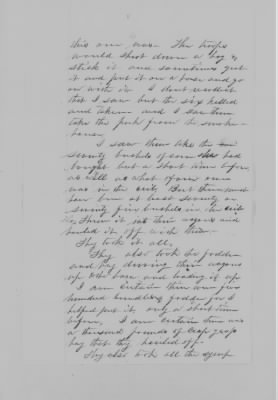 this one was. The troops
would shoot down a hog &
stick it and sometimes gut
it and put it on a horse and go
on with it. I dont recollect
that I saw but the six killed
and taken and I saw them
take the pork from the smoke-
house.
I saw them take the
seventy bushels of corn she had
bought but a short time before
as well as what other corn
was in the crib. But there must
have been at least seventy or
seventy five bushels in the crib
They threw it into their wagons and
hauled it off with them.
They took it all.
They also took the fodder
and hay driving their wagons
up to the house and loading it up.
I am certain there was five
hundred bundles fodder for I
helped put it, only a short time
before. I am certain there was
a thousand pounds of crap grass
hay that they hauled off.
They also took all the syrup